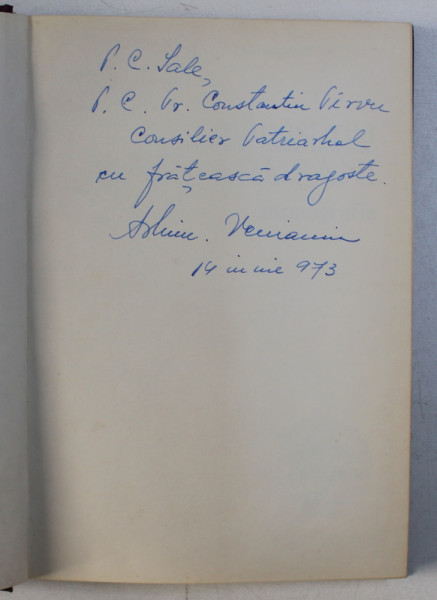 P. C. Sale,
P. C. Pr. Constantin Pîrvu
Consilier Patriarhal
cu frățească dragoste.
Arhim. Veniamin
14 iunie 973